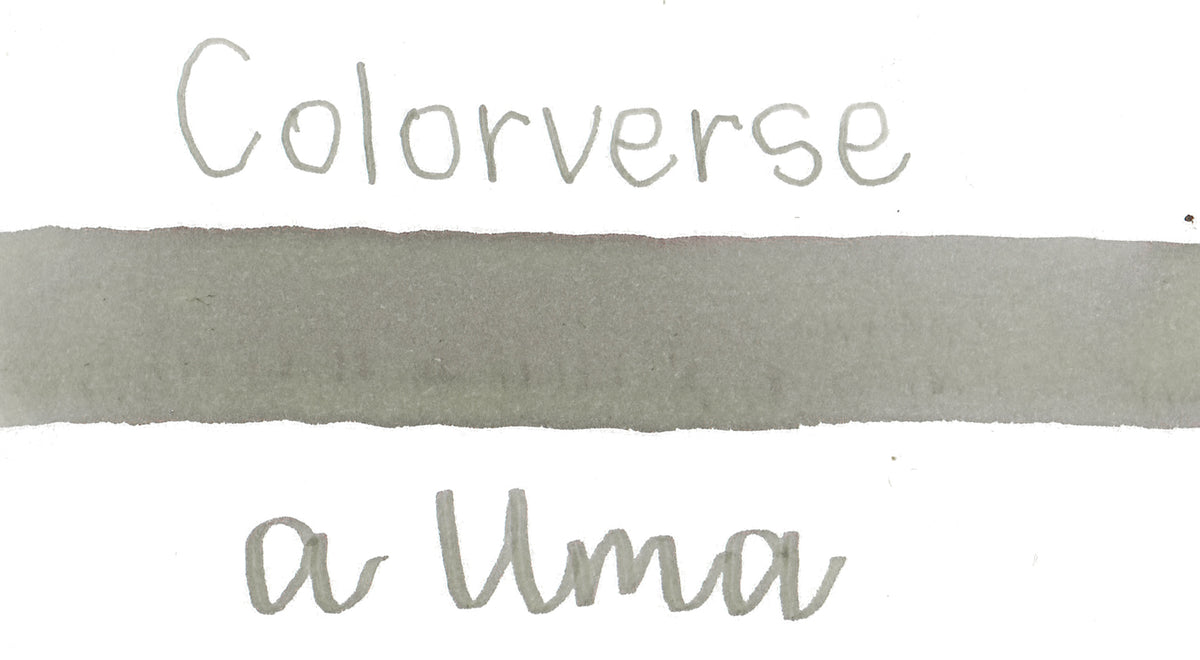 Colorverse
a Uma